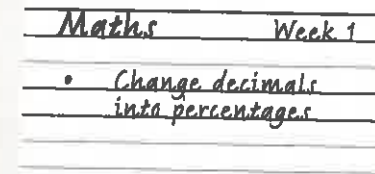 Maths Week 1
• Change decimals
into percentages